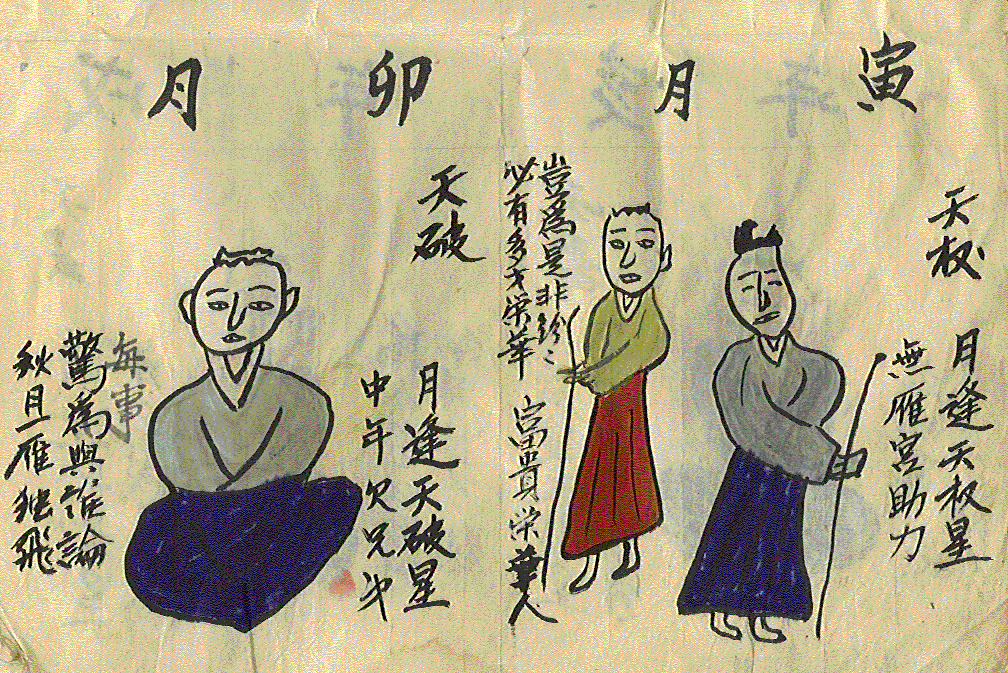 寅月
天权
月逢天权星
無雁宮助力
豈爲是非
必有多才栄華
富貴栄華人
卯月
天破
月逢天破星
中年欠兄弟
每事
驚爲與誰論
秋月一雁独飛